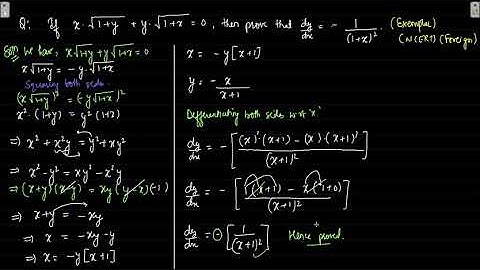 Q: If x·√1+y + y·√1+x = 0, then prove that dy/dx = - 1/(1+x)². (Exemplar)
(NCERT) (Foreign)
Solⁿ We have, x√1+y + y√1+x = 0
x√1+y = -y·√1+x
Squaring both sides.
(x√1+y)² = (-y√1+x)²
x²·(1+y) = y²(1+x)
⇒ x² + x²y = y² + xy²
⇒ x² - y² = xy² - x²y
⇒ (x+y)(x-y) = xy(y-x)(-1)
⇒ x+y = -xy
⇒ x = -xy - y
⇒ x = -y[x+1]
x = -y[x+1]
y = - x/(x+1)
Differentiating both sides w.r.t 'x'
dy/dx = -[((x)'·(x+1) - (x)·(x+1)')/(x+1)²]
dy/dx = -[(1(x+1) - x(1+0))/(x+1)²]
dy/dx = -[1/(x+1)²] Hence proved.